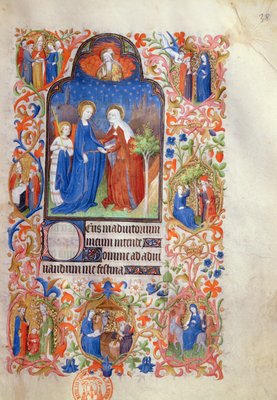 38
Deus in adiutorium
meum intende
Domine ad adiu
uandum me festina